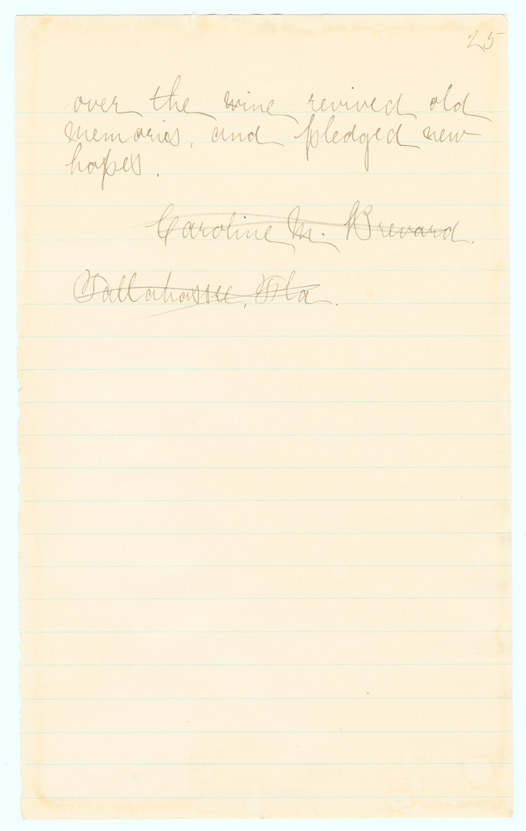 25
over the wine revived old
memories, and pledged new
hopes.
Caroline M. Brevard.
Tallahassee, Fla.